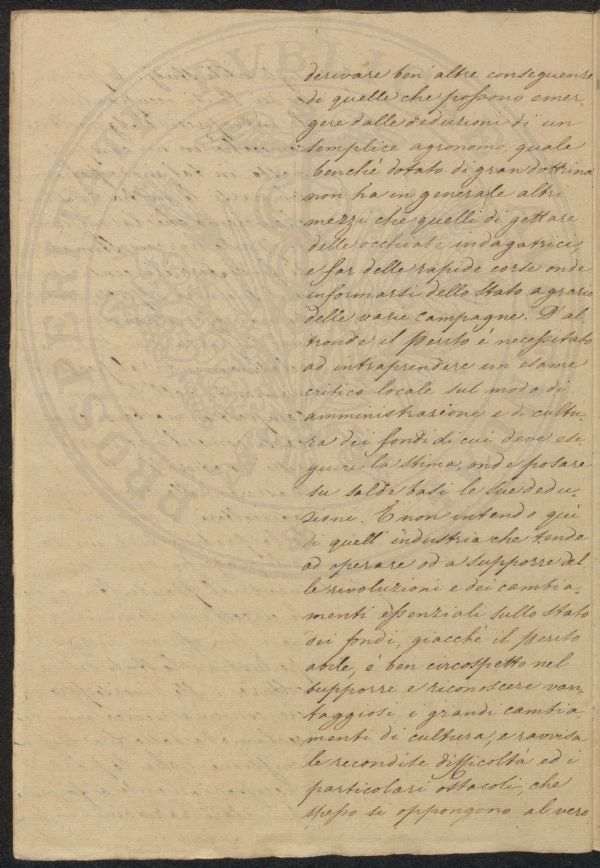 derivare ben' altre conseguenze
di quelle che possono emer-
gere dalle deduzioni di un
semplice agronomo, quale
benchè dotato di gran dottrina
non ha in generale altri
mezzi che quelli di gettare
delle occhiate indagatrici,
e far delle rapide corse onde
informarsi dello stato agrario
delle varie campagne. D'al
tronde il Perito è necessitato
ad intraprendere un esame
critico locale sul modo di
amministrazione e di cultu-
ra dei fondi di cui deve ese
guire la stima, onde posare
su salde basi le sue dedu-
zioni. E non intendo quì
di quell' industria che tende
ad operare od a supporre del
le rivoluzioni e dei cambia-
menti essenziali sullo stato
dei fondi, giacchè il perito
abile, è ben circospetto nel
supporre e riconoscere van-
taggiosi i grandi cambia-
menti di cultura, e ravvisa
le recondite difficoltà ed i
particolari ostacoli, che
spesso si oppongono al vero